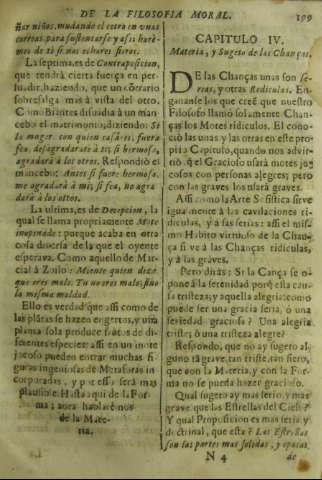 DE LA FILOSOFIA MORAL. 199
ñar niños, mudando el cetro en unas
correas para sustentarse y assi harè-
mos de ti si nos echares fieros.
La septima, es de Contraposicion,
que tendrà cierta fuerça en per-
suadir, haziendo, que un cõtrario
sobresalga mas à vista del otro.
Como Biantes disuadia à un man-
cebo el matrimonio, diziendo: Si
la muger con quien casàres, fuere
fea, desagradarate à ti; si hermosa,
agradarà à los otros. Respondiò el
mancebo: Antes si fuere hermosa,
me agradarà à mi; si fea, no agra-
darà à los otros.
La ultima, es de Decepcion, la
qual se llama propriamente Mote
inopinado: porque acaba en otra
cosa diversa de la que el oyente
esperava. Como aquello de Mar-
cial à Zoilo: Miente quien dize
que eres malo. Tu no eres malo, sino
la mesma maldad.
Ello es verdad que assi como de
las plãtas se hazen engertos, y una
planta sola produce frutos de di-
ferentes especies: assi en un mote
jocoso pueden entrar muchas fi-
guras ingeniosas de Metaforas in-
corporadas, y por esso serà mas
plausible. Hasta aqui de la For-
ma: aora hablarèmos
de la Mate-
ria.
CAPITULO IV.
Materia, y Sugeto de las Chanças.
DE las Chanças unas son Se-
reas, y otras Rediculas. En-
gananse los que creē que nuestro
Filosofo llamò solamente Chan-
ças los Motes ridiculos. El cono-
ciò las unas y las otras en este pro-
pio Capitulo, quando nos advir-
tiò, q̃ el Gracioso usarà motes jo-
cosos con personas alegres; pero
con las graves los usarà graves.
Assi como la Arte Sofistica sirve
igualmente à las cavilaciones ri-
diculas, y à las serias: assi el mis-
mo Habito virtuoso de la Chan-
ça sirve à las Chanças ridiculas,
y à las graves.
Pero diràs: Si la Cança se o-
pone à la serenidad porq̃ esta cau-
sa tristeza; y aquella alegria: como
puede ser una gracia seria, ò una
seriedad graciosa? Una alegria
triste; ò una tristeza alegre?
Respondo, que no ay sugeto al-
guno tã grave, tan triste, tan fiero,
que con la Materia, y con la For-
ma no se pueda hazer gracioso.
Qual sugeto ay mas serio, y mas
grave que las Estrellas del Cielo?
Y qual Proposicion es mas seria y
doctrinal, que esta? Las Estrellas
son las partes mas solidas, y opacas
N 4 de